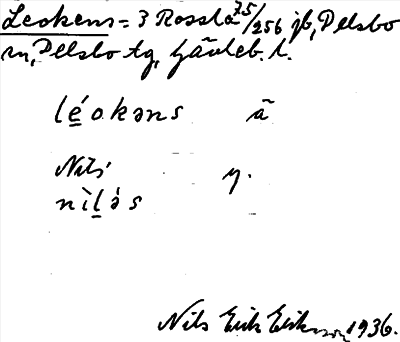 Leokens = 3 Rossla 75/256 jb, Delsbo
sn, Delsbo tg, Gävleb. l.
lé̱okəns ã
Nils' y.
nìḻə́s
Nils Erik Eriksson 1936.